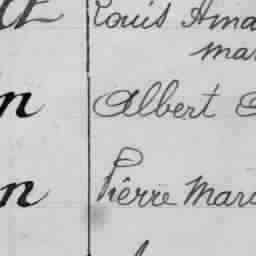 Louis Ama
mar
n Albert
n Pierre Mari